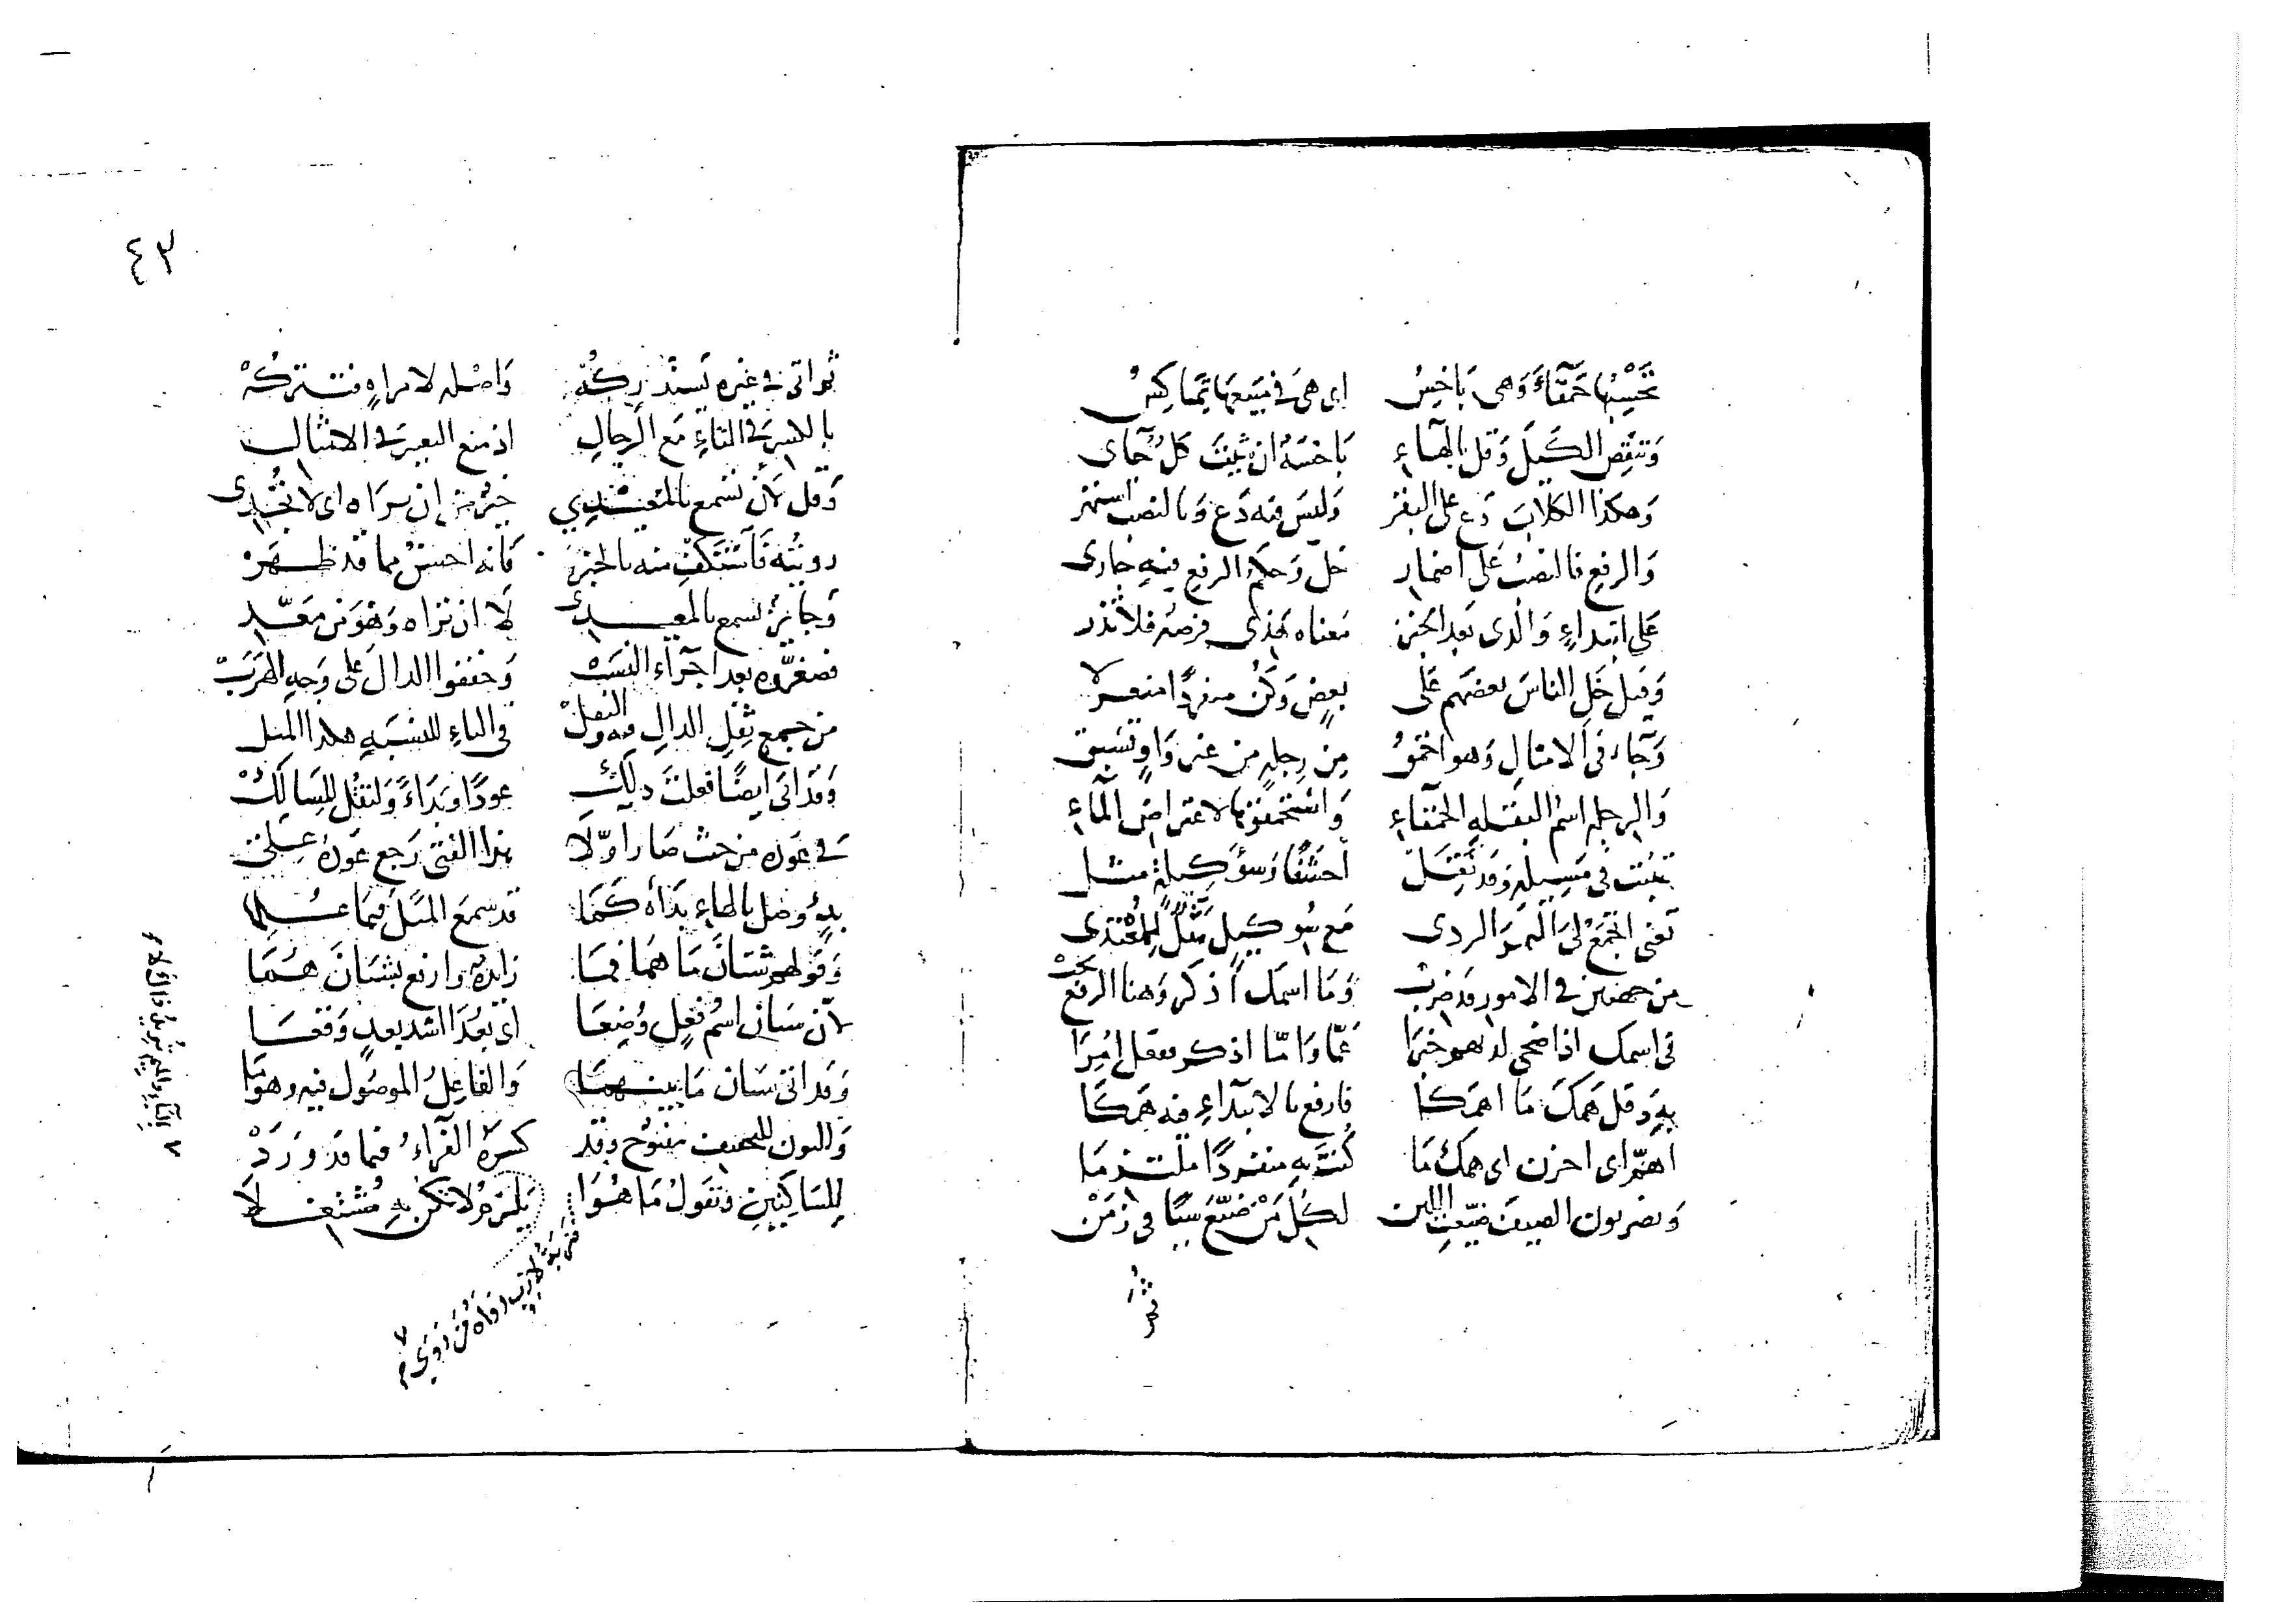 تحسبها حمقاء وهى باخس اى هى فى مبيعها تماكس
وتنقص الكيل وقل بالهاء باخسة ان ثبتت كل جاى
وهكذا الكلاب دع على البقر وليس فيه دع وبالنصب استقر
والرفع فالنصب على اضمار خل وحكم الرفع فيه جارى
على ابتداء والذى بعد الخبر معناه هذى فرصة فلا تذر
وقيل خل الناس بعضهم على بعض وكن منفردا منعزلا
وجاء فى الامثال وهو احمق من رجلة من غير واو تسبق
والرجلة اسم البقلة الحمقاء واستحمقوها لاعتراض الماء
تنبت فى مسيله وقد نقل أحشفا وسؤ كيلة مثل
تعنى اتجمع لى التمر الردى مع سو كيل مثل للمقتدى
من جهتين فى الامور قد ضرب وما اسمك اذكر وهنا الرفع يجب
فى اسمك اذا ضحى لديهم خبرا عما واما اذكر ففعل امرا
به وقل همك ما اهمكا فارفع بالابتداء فيه همكا
اهم اى احزن اى همك ما كنت به منفردا ملتزما
ويضربون الصيف ضيعت اللبن لكل من ضيع شيئا فى زمن
ثم
٤٣
ثم اتى فى غيره يستدركه واصله لامراه فتتركه
بالكسر فى التاء مع الرجال اذ منع التغيير فى الامثال
وقل لأن تسمع بالمعيدي خير من ان تراه اى لا تجدى
رويته فآستكف منه بالخبر فانه احسن مما قد ظهر
وجايز تسمع بالمعيدى لا ان تراه وهو من معد
فصغروه بعد اجراء النسب وخففوا الدال على وجه الهرب
من جمع ثقل الدال فيه والثقل فى الياء للنسبة هكذا المثل
وقد اتى ايضا فعلت ذلك عودا وبداء ولتقل للسالك
فى عوده من حيث صار اولا هذا الفتى رجع عوده على
بدء وصل بالهاء بدأه كما قد سمع المثل فيما علما
وقولهم شتان ما هما فما زايدة وارفع بشتان هما
لان شتان اسم فعل وضعا اى بعدا اشد بعد وقعا
وقد اتى شتان ما بينهما والفاعل الموصول فيه وهو ما
والنون للتخفيف مفتوح وقد كسره الفراء فيما قد ورد
للساكنين وتقول ما هوا يلزم ولا تكن به مشتغلا